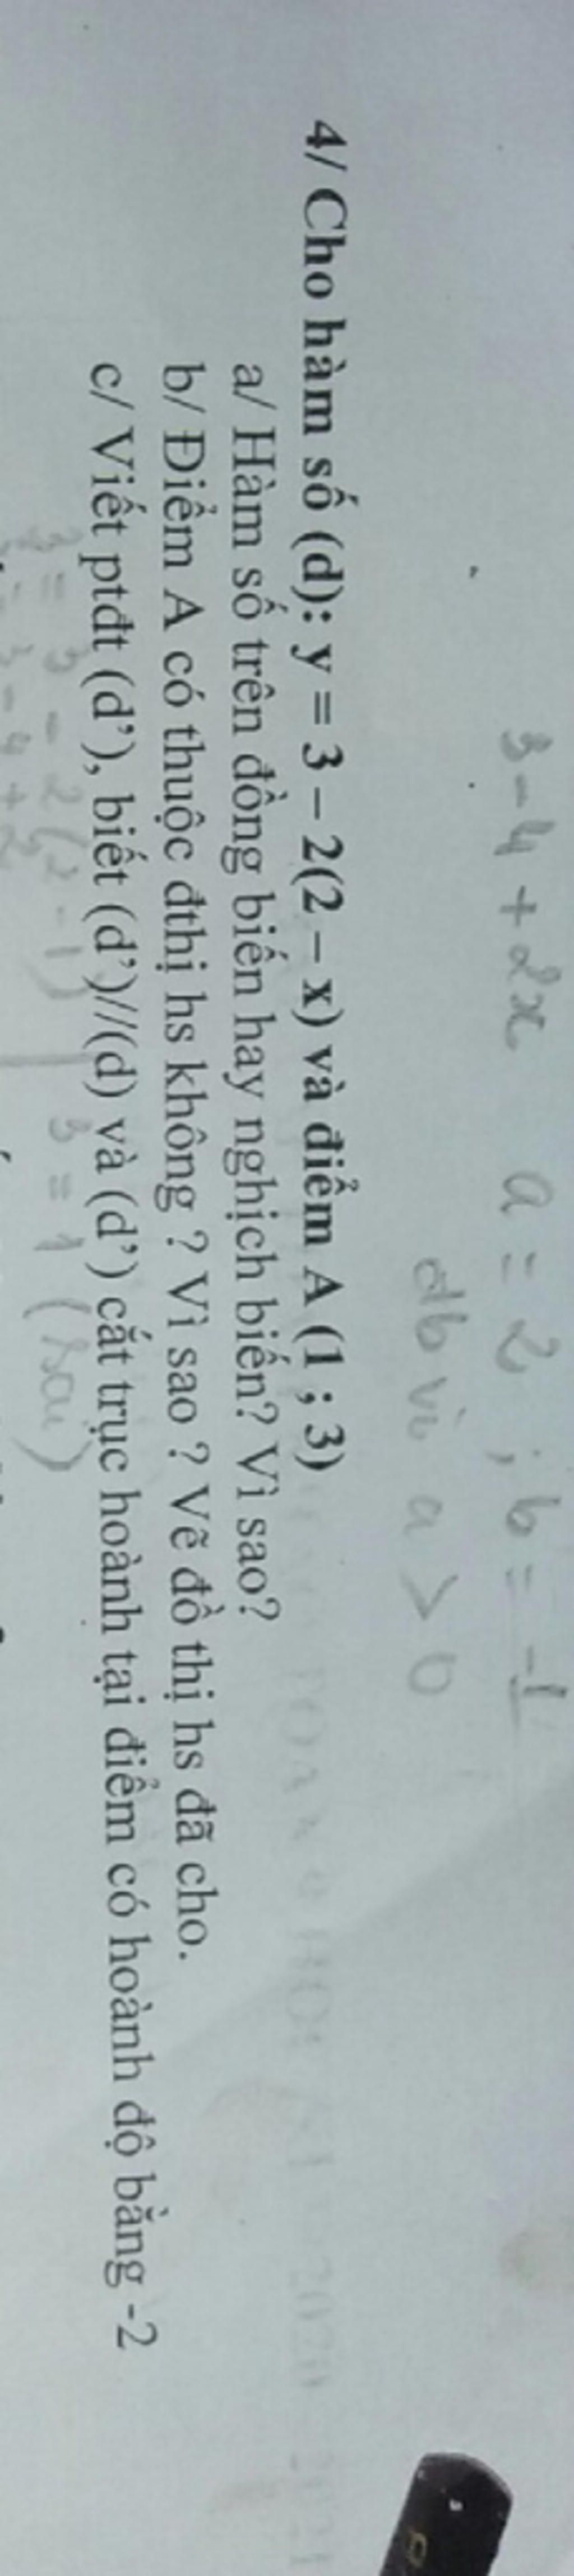 3-4+2x a = 2 ; b = -1
đb vì a > 0
4/ Cho hàm số (d): y = 3 – 2(2 – x) và điểm A (1 ; 3)
a/ Hàm số trên đồng biến hay nghịch biến? Vì sao?
b/ Điểm A có thuộc đthị hs không ? Vì sao ? Vẽ đồ thị hs đã cho.
c/ Viết ptđt (d’), biết (d’)//(d) và (d’) cắt trục hoành tại điểm có hoành độ bằng -2
3 = 3 - 2(2-1) 3 = 1 (sai)
3 = 3-4+2